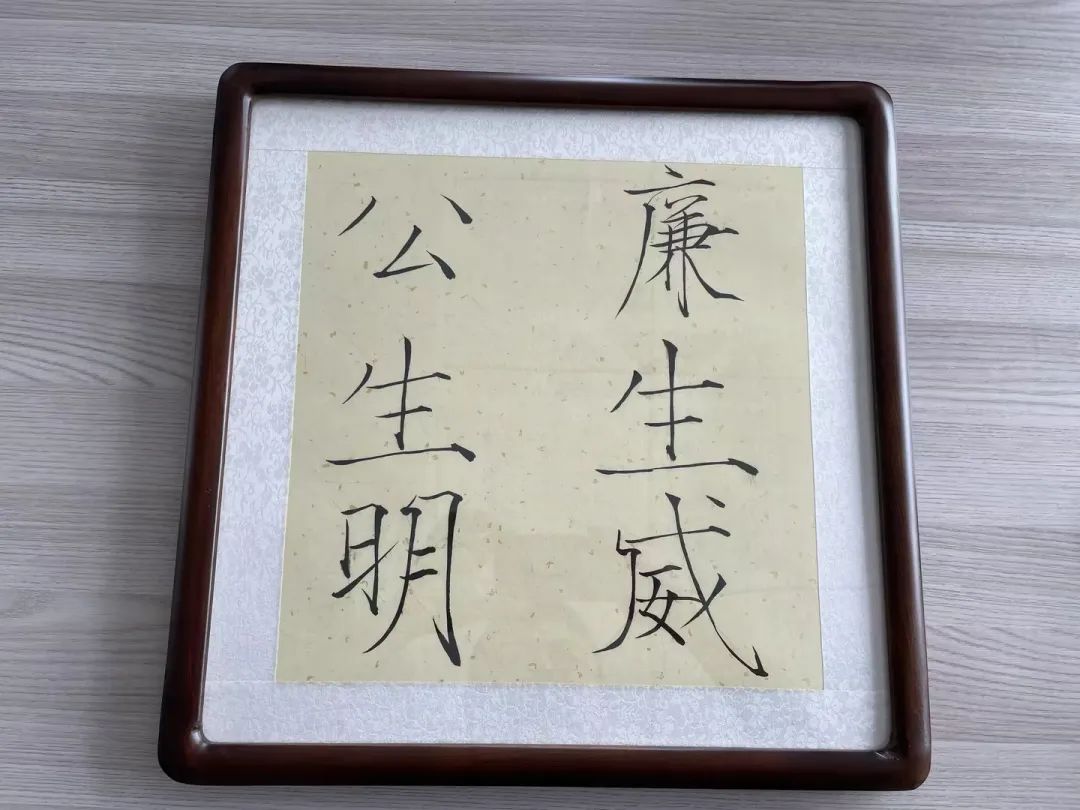 廉生威
公生明